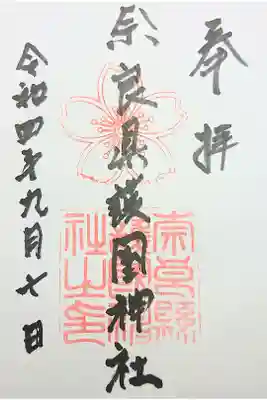 奉拝
奈良県護国神社
令和四年九月七日
奈良縣護國神社之印